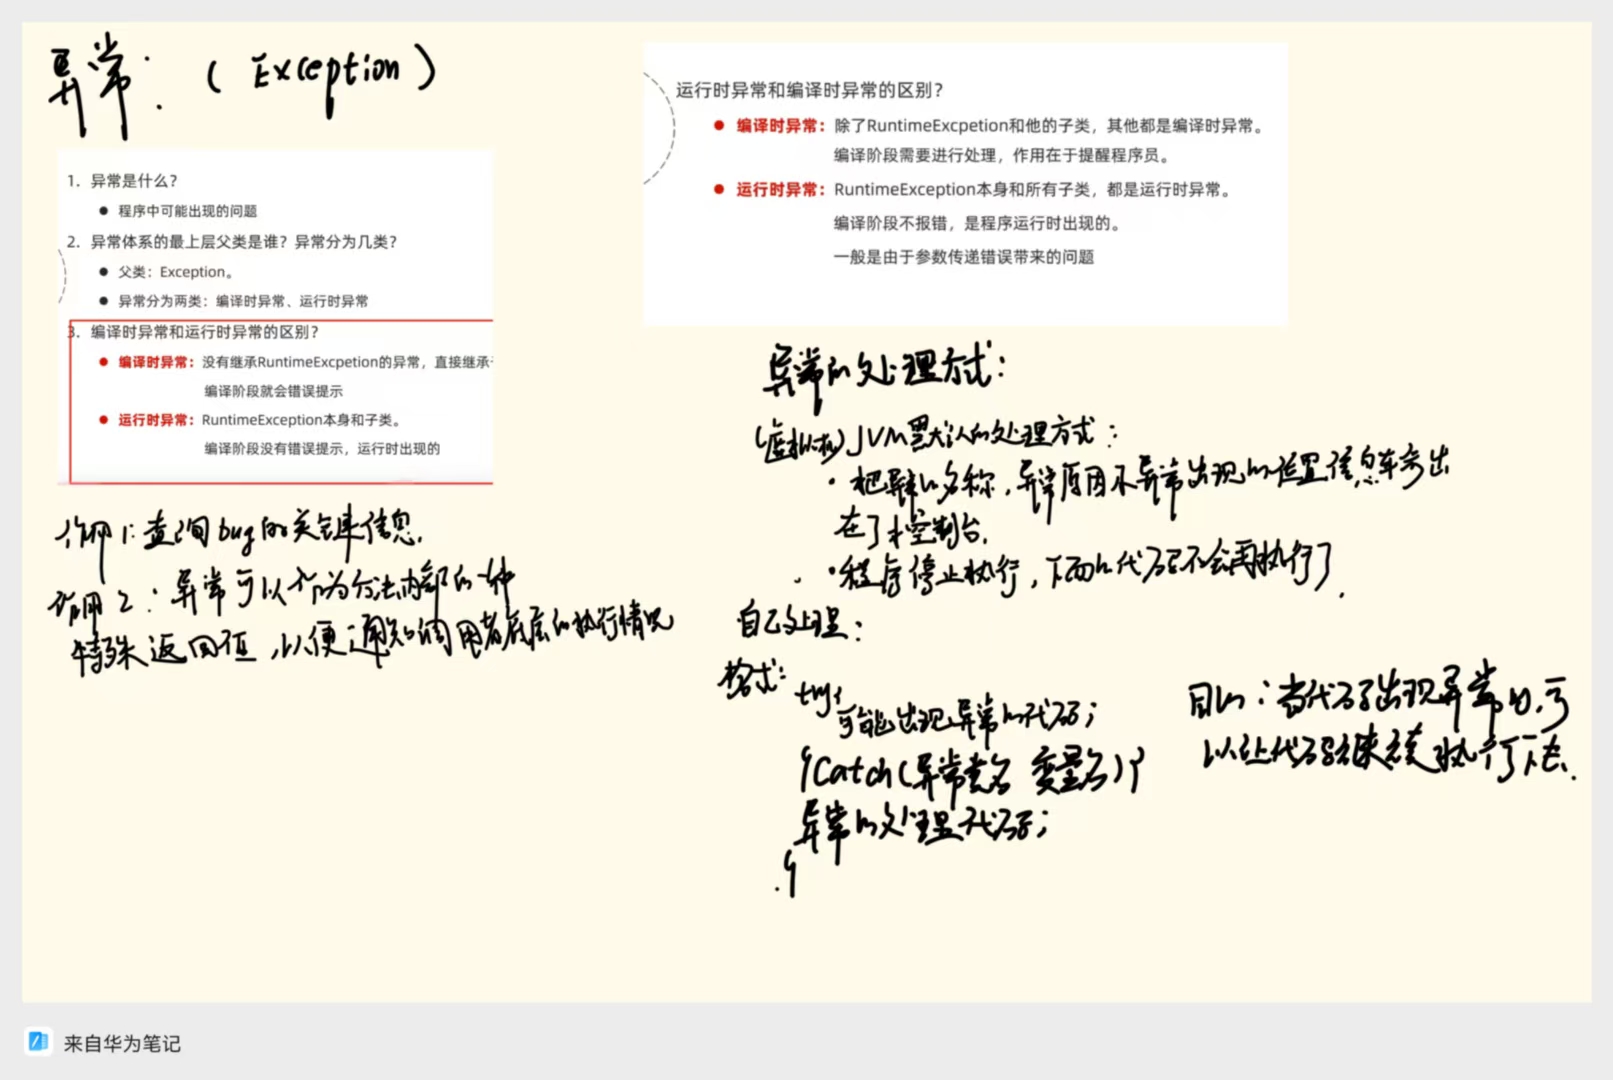 异常：（Exception）
1. 异常是什么？
● 程序中可能出现的问题
2. 异常体系的最上层父类是谁？异常分为几类？
● 父类：Exception。
● 异常分为两类：编译时异常、运行时异常
3. 编译时异常和运行时异常的区别？
● 编译时异常：没有继承RuntimeExcpetion的异常，直接继承
编译阶段就会错误提示
● 运行时异常：RuntimeException本身和子类。
编译阶段没有错误提示，运行时出现的
作用1：查询bug的关键信息.
作用2：异常可以作为方法内部的一种
特殊返回值，以便通知调用者底层的执行情况
运行时异常和编译时异常的区别？
● 编译时异常：除了RuntimeExcpetion和他的子类，其他都是编译时异常。
编译阶段需要进行处理，作用在于提醒程序员。
● 运行时异常：RuntimeException本身和所有子类，都是运行时异常。
编译阶段不报错，是程序运行时出现的。
一般是由于参数传递错误带来的问题
异常的处理方式：
(虚拟机)JVM默认的处理方式：
·把异常的名称，异常原因及异常出现的位置信息等输出
在了控制台.
·程序停止执行，下面的代码不会再执行了.
自己处理：
格式：try{
可能出现异常的代码；
}Catch(异常类名 变量名){
异常的处理代码；
}
目的：当代码出现异常时,可
以让代码继续执行下去.
来自华为笔记